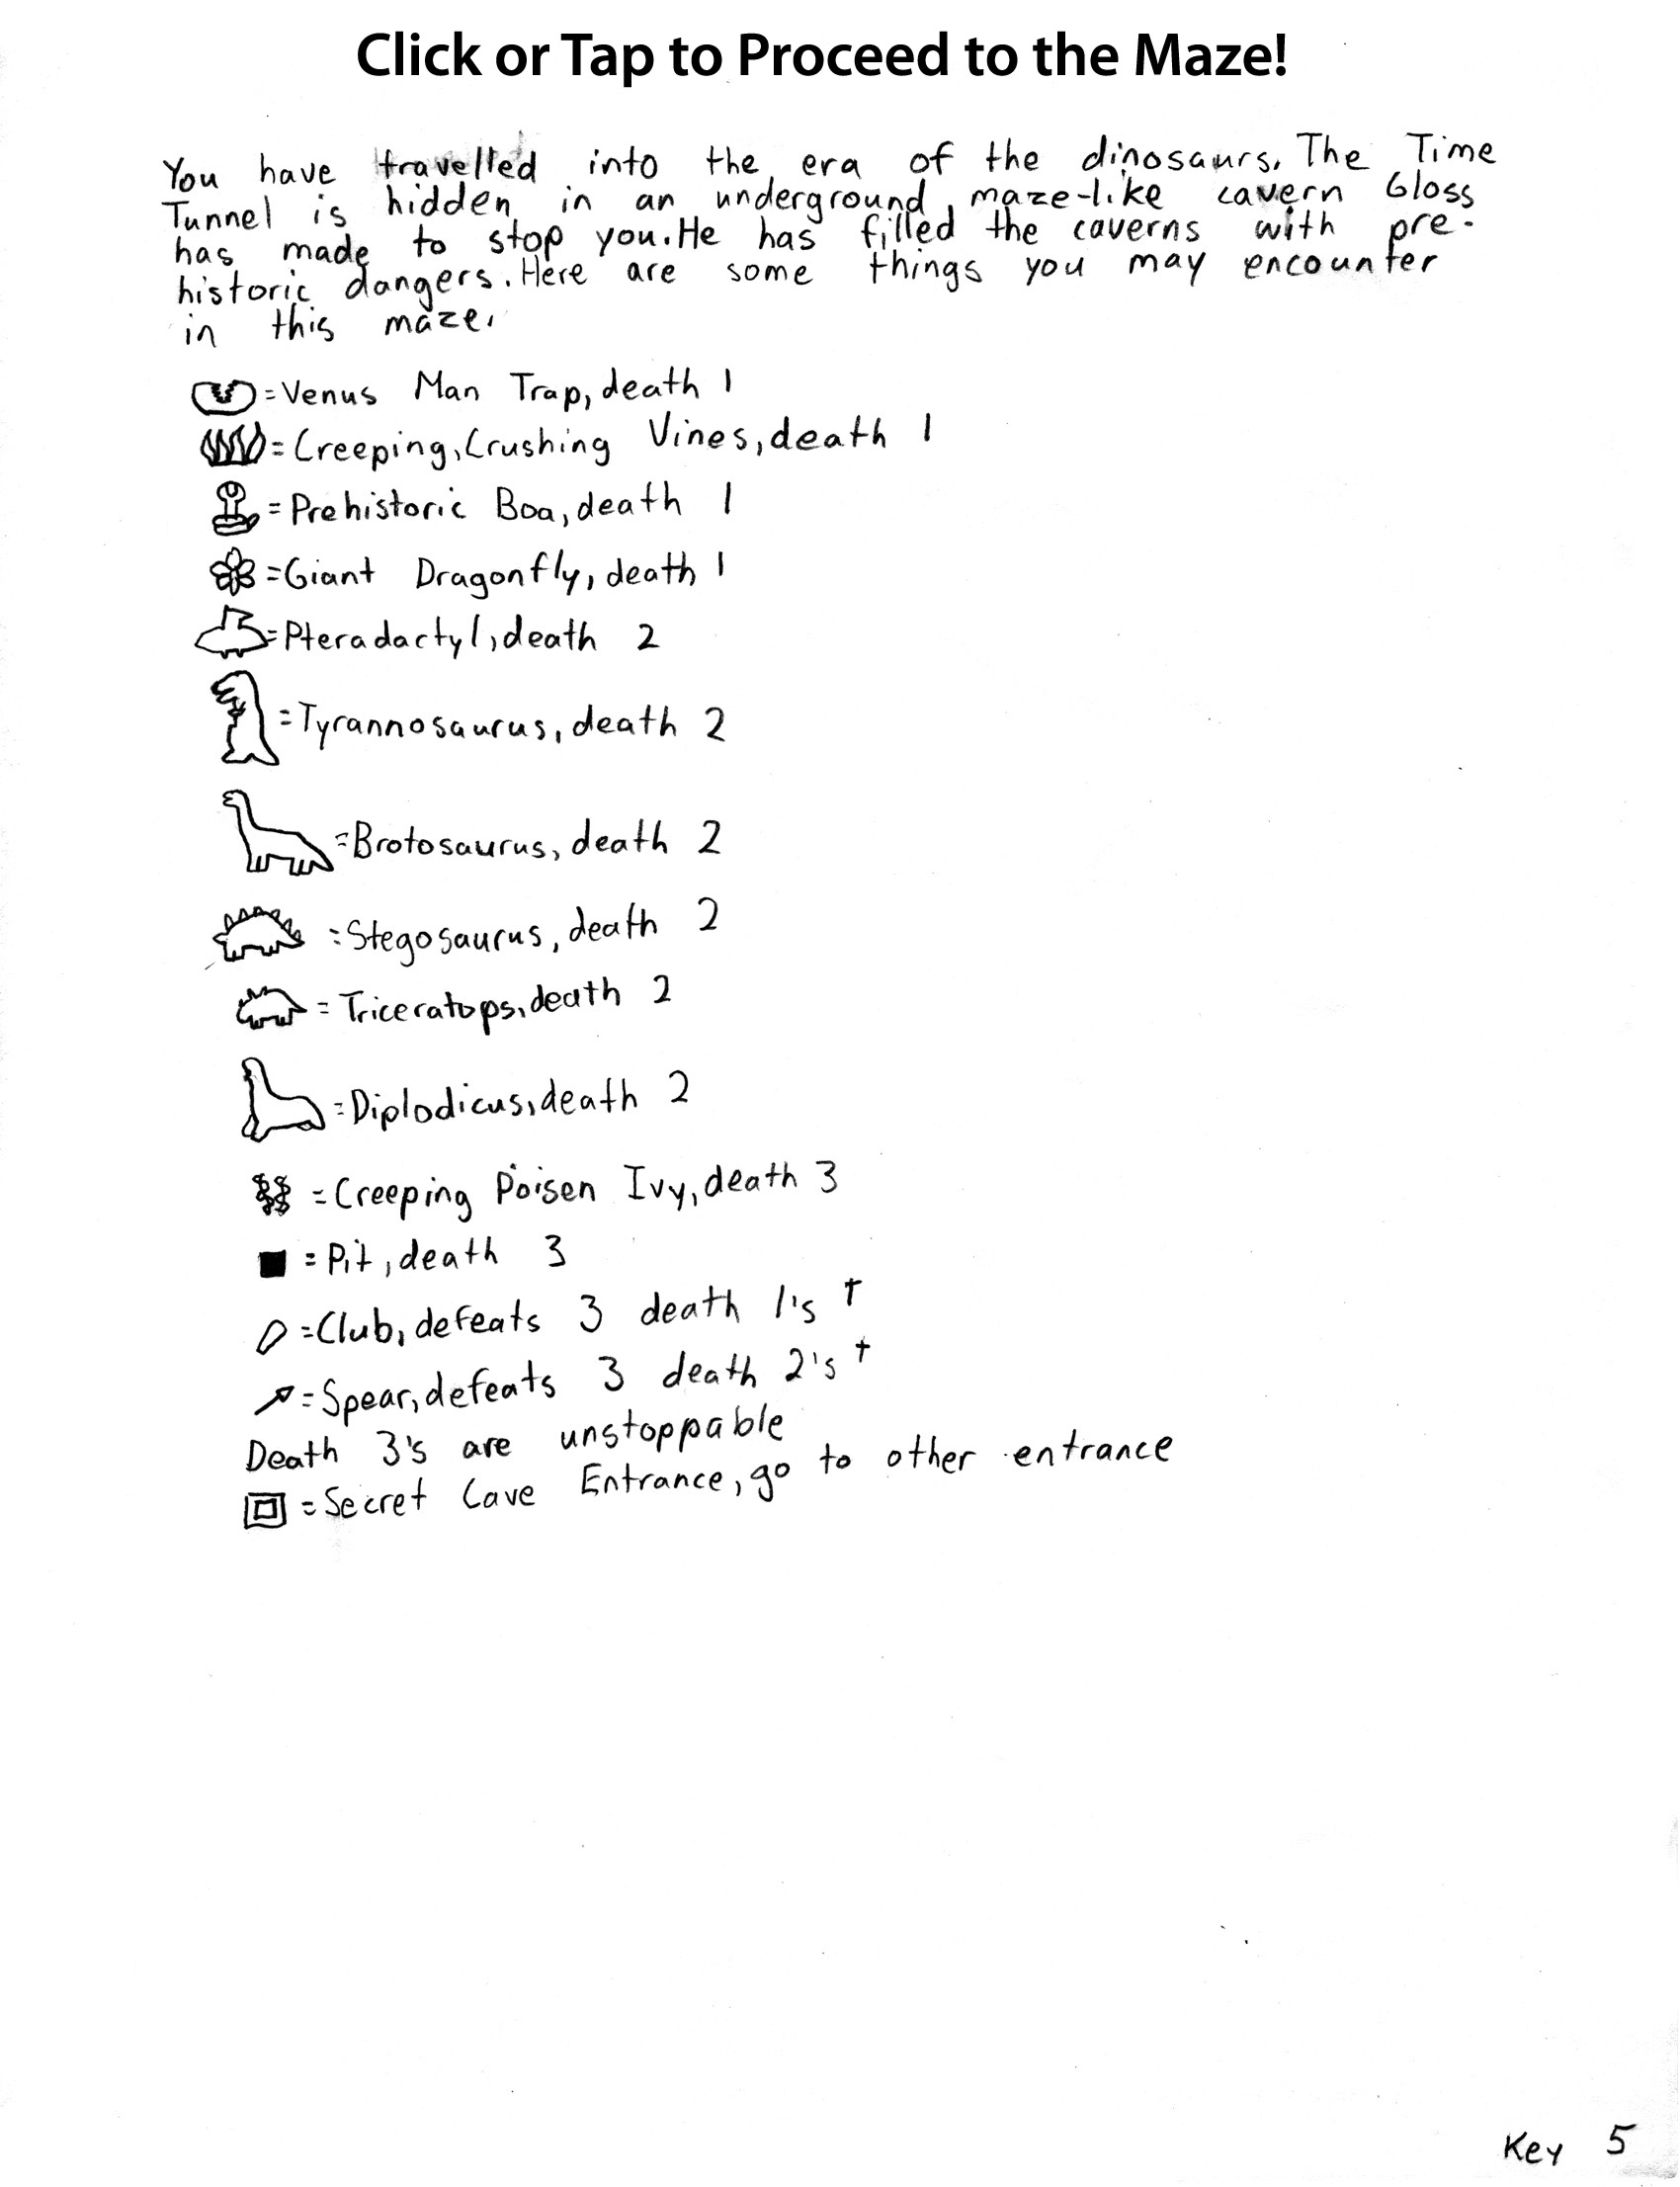 Click or Tap to Proceed to the Maze!
You have travelled into the era of the dinosaurs. The Time
Tunnel is hidden in an underground maze-like cavern Gloss
has made to stop you. He has filled the caverns with pre-
historic dangers. Here are some things you may encounter
in this maze.
=Venus Man Trap, death 1
=Creeping, Crushing Vines, death 1
=Prehistoric Boa, death 1
=Giant Dragonfly, death 1
=Pteradactyl, death 2
=Tyrannosaurus, death 2
=Brotosaurus, death 2
=Stegosaurus, death 2
=Triceratops, death 2
=Diplodicus, death 2
=Creeping Poisen Ivy, death 3
=Pit, death 3
=Club, defeats 3 death 1's †
=Spear, defeats 3 death 2's †
Death 3's are unstoppable
=Secret Cave Entrance, go to other entrance
Key 5